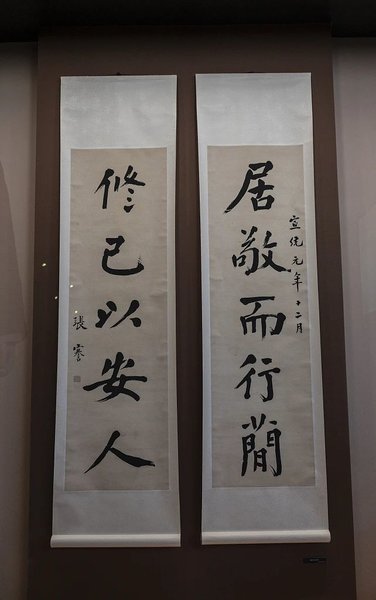 宣統元年十二月
居敬而行簡
修己以安人
張謇